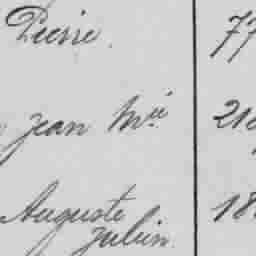 Pierre. 77
Jean Mie 21
Auguste 18
Julien.